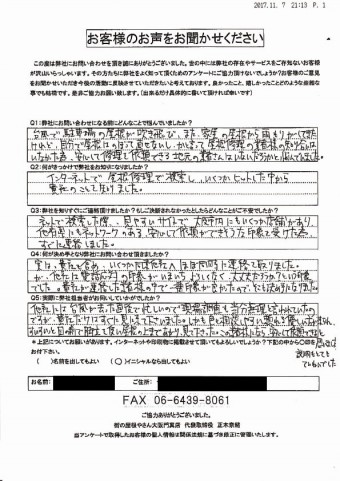 2017.11. 7 21:13 P. 1
お客様のお声をお聞かせください
この度は弊社にお問い合わせを頂き誠にありがとうございました。世の中には弊社の存在やサービスをご存知ないお客様
が沢山いらっしゃいます。その方たちに弊社をよく知って頂くためのアンケートにご協力頂けないでしょうか?お客様のご意見
をお聞かせいただき今後の活動に役立てさせていただきたいと考えております。良かったこと、嬉しかったことどのような些細な
事でも結構です。是非ご協力お願い致します。(出来るだけ具体的に書いて頂ければ幸いです)
Q1:弊社にお問い合わせになる前にどんなことで悩んでいましたか?
台風で駐車場の屋根が吹き飛び、また、客室の屋根から雨もりがしてきた
けれど、自力で屋根にのぼって直せないし、かといって屋根修理の
いなかった為、安心して修理を依頼できる地元の
Q2:何がきっかけで弊社をお知りになりましたか?
インターネットで屋根修理で検索し、いくつかヒットした中から
貴社のことを知りました。
Q3:弊社を知りすぐにご連絡頂けましたか?もしご決断されなかったとしたらどんなことがご不安でしたか?
ネットで検索した際、見やすいサイトで大阪府内にもいくつか店舗があり、
他府県にもネットワークのある、安心して依頼ができそうな印象を受けた為、
すぐに連絡しました。
Q4:何が決め手となり弊社にお問い合わせ頂きましたか?
実は、貴社を含め、いくつかの業者さんへほぼ同時に連絡を取りました。
が、他社は電話応対の印象がいまいちよろしくなく、大丈夫だろうか?という印象
でした。貴社が連絡した業者の中で一番印象が良かったので、
Q5:実際に弊社担当者がお伺いしていかがでしたか?
他社には台風がきた直後で忙しいので現場調査も当分無理と言われていたの
ですが、貴社だけはすぐに見に来て下さいました。しかも
*上記についてお願いがあります。インターネットや印刷物に掲載させて頂いてもよろしいでしょうか?下記の中から○印を
お付下さい。
( )名前を出してもよい (○)イニシャルなら出してもよい
説明もしても
お名前: ご住所:
FAX 06-6439-8061
ご協力ありがとうございました。
街の屋根やさん大阪門真店 代表取締役 正木奈緒
当アンケートで取得したお客様の個人情報は関係法規に基づき適正に管理いたします。